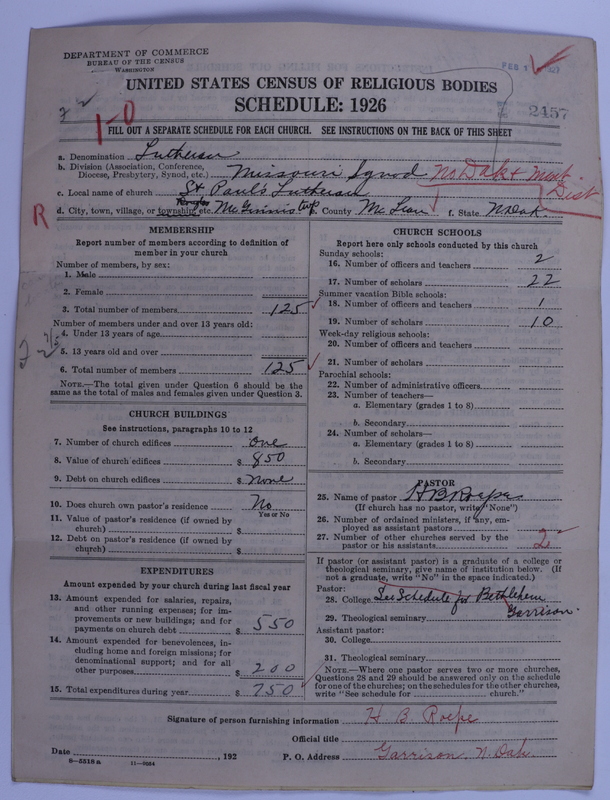 DEPARTMENT OF COMMERCE
BUREAU OF THE CENSUS
WASHINGTON
FEB 1 1927
UNITED STATES CENSUS OF RELIGIOUS BODIES
SCHEDULE: 1926
2457
1-0
FILL OUT A SEPARATE SCHEDULE FOR EACH CHURCH. SEE INSTRUCTIONS ON THE BACK OF THIS SHEET
a. Denomination Lutheran
b. Division (Association, Conference, Diocese, Presbytery, Synod, etc.) Missouri Synod No Dak + Mont Dist
c. Local name of church St Paul's Lutheran
R d. City, town, village, or township, etc. McGinnis twp e. County McLean f. State N.Dak.
MEMBERSHIP
Report number of members according to definition of
member in your church
Number of members, by sex:
1. Male
2. Female
3. Total number of members 125
Number of members under and over 13 years old:
4. Under 13 years of age
5. 13 years old and over
6. Total number of members 125
NOTE.—The total given under Question 6 should be the
same as the total of males and females given under Question 3.
CHURCH BUILDINGS
See instructions, paragraphs 10 to 12
7. Number of church edifices one
8. Value of church edifices $ 850
9. Debt on church edifices $ none
10. Does church own pastor's residence No
Yes or No
11. Value of pastor's residence (if owned by
church) $
12. Debt on pastor's residence (if owned by
church) $
EXPENDITURES
Amount expended by your church during last fiscal year
13. Amount expended for salaries, repairs,
and other running expenses; for im-
provements or new buildings; and for
payments on church debt $ 550
14. Amount expended for benevolences, in-
cluding home and foreign missions; for
denominational support; and for all
other purposes $ 200
15. Total expenditures during year $ 750
CHURCH SCHOOLS
Report here only schools conducted by this church
Sunday schools:
16. Number of officers and teachers 2
17. Number of scholars 22
Summer vacation Bible schools:
18. Number of officers and teachers 1
19. Number of scholars 10
Week-day religious schools:
20. Number of officers and teachers
21. Number of scholars
Parochial schools:
22. Number of administrative officers
23. Number of teachers—
a. Elementary (grades 1 to 8)
b. Secondary
24. Number of scholars—
a. Elementary (grades 1 to 8)
b. Secondary
PASTOR
25. Name of pastor H B Roepe
(If church has no pastor, write "None")
26. Number of ordained ministers, if any, em-
ployed as assistant pastors
27. Number of other churches served by the
pastor or his assistants 2
If pastor (or assistant pastor) is a graduate of a college or
theological seminary, give name of institution below. (If
not a graduate, write "No" in the space indicated.)
Pastor:
28. College See Schedule for Bethlehem
Garrison.
29. Theological seminary
Assistant pastor:
30. College
31. Theological seminary
NOTE.—Where one pastor serves two or more churches,
Questions 28 and 29 should be answered only on the schedule
for one of the churches; on the schedules for the other churches,
write "See schedule for ............ church."
Signature of person furnishing information H B Roepe
Official title
Date , 192 P. O. Address Garrison, N. Dak.
8—5518 a 11—9064